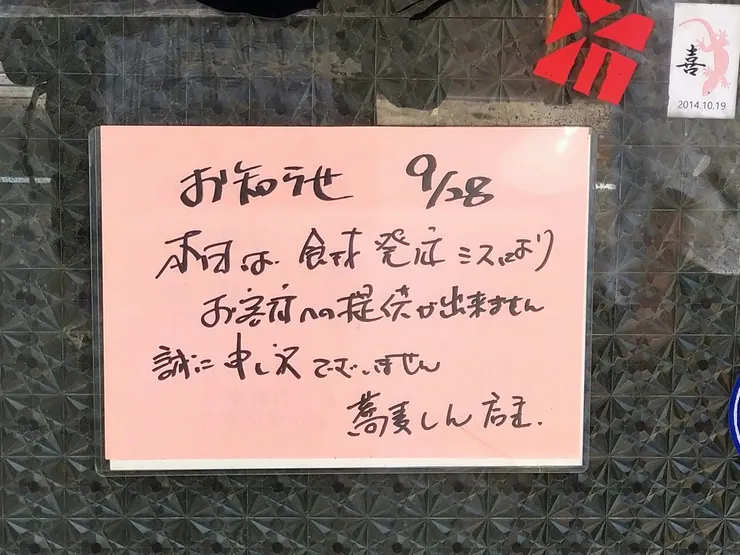 喜
2014.10.19
お知らせ 9/28
本日は、食材発注ミスにより
お客様への提供が出来ません
誠に申し訳ございません
蕎麦しん 店主.